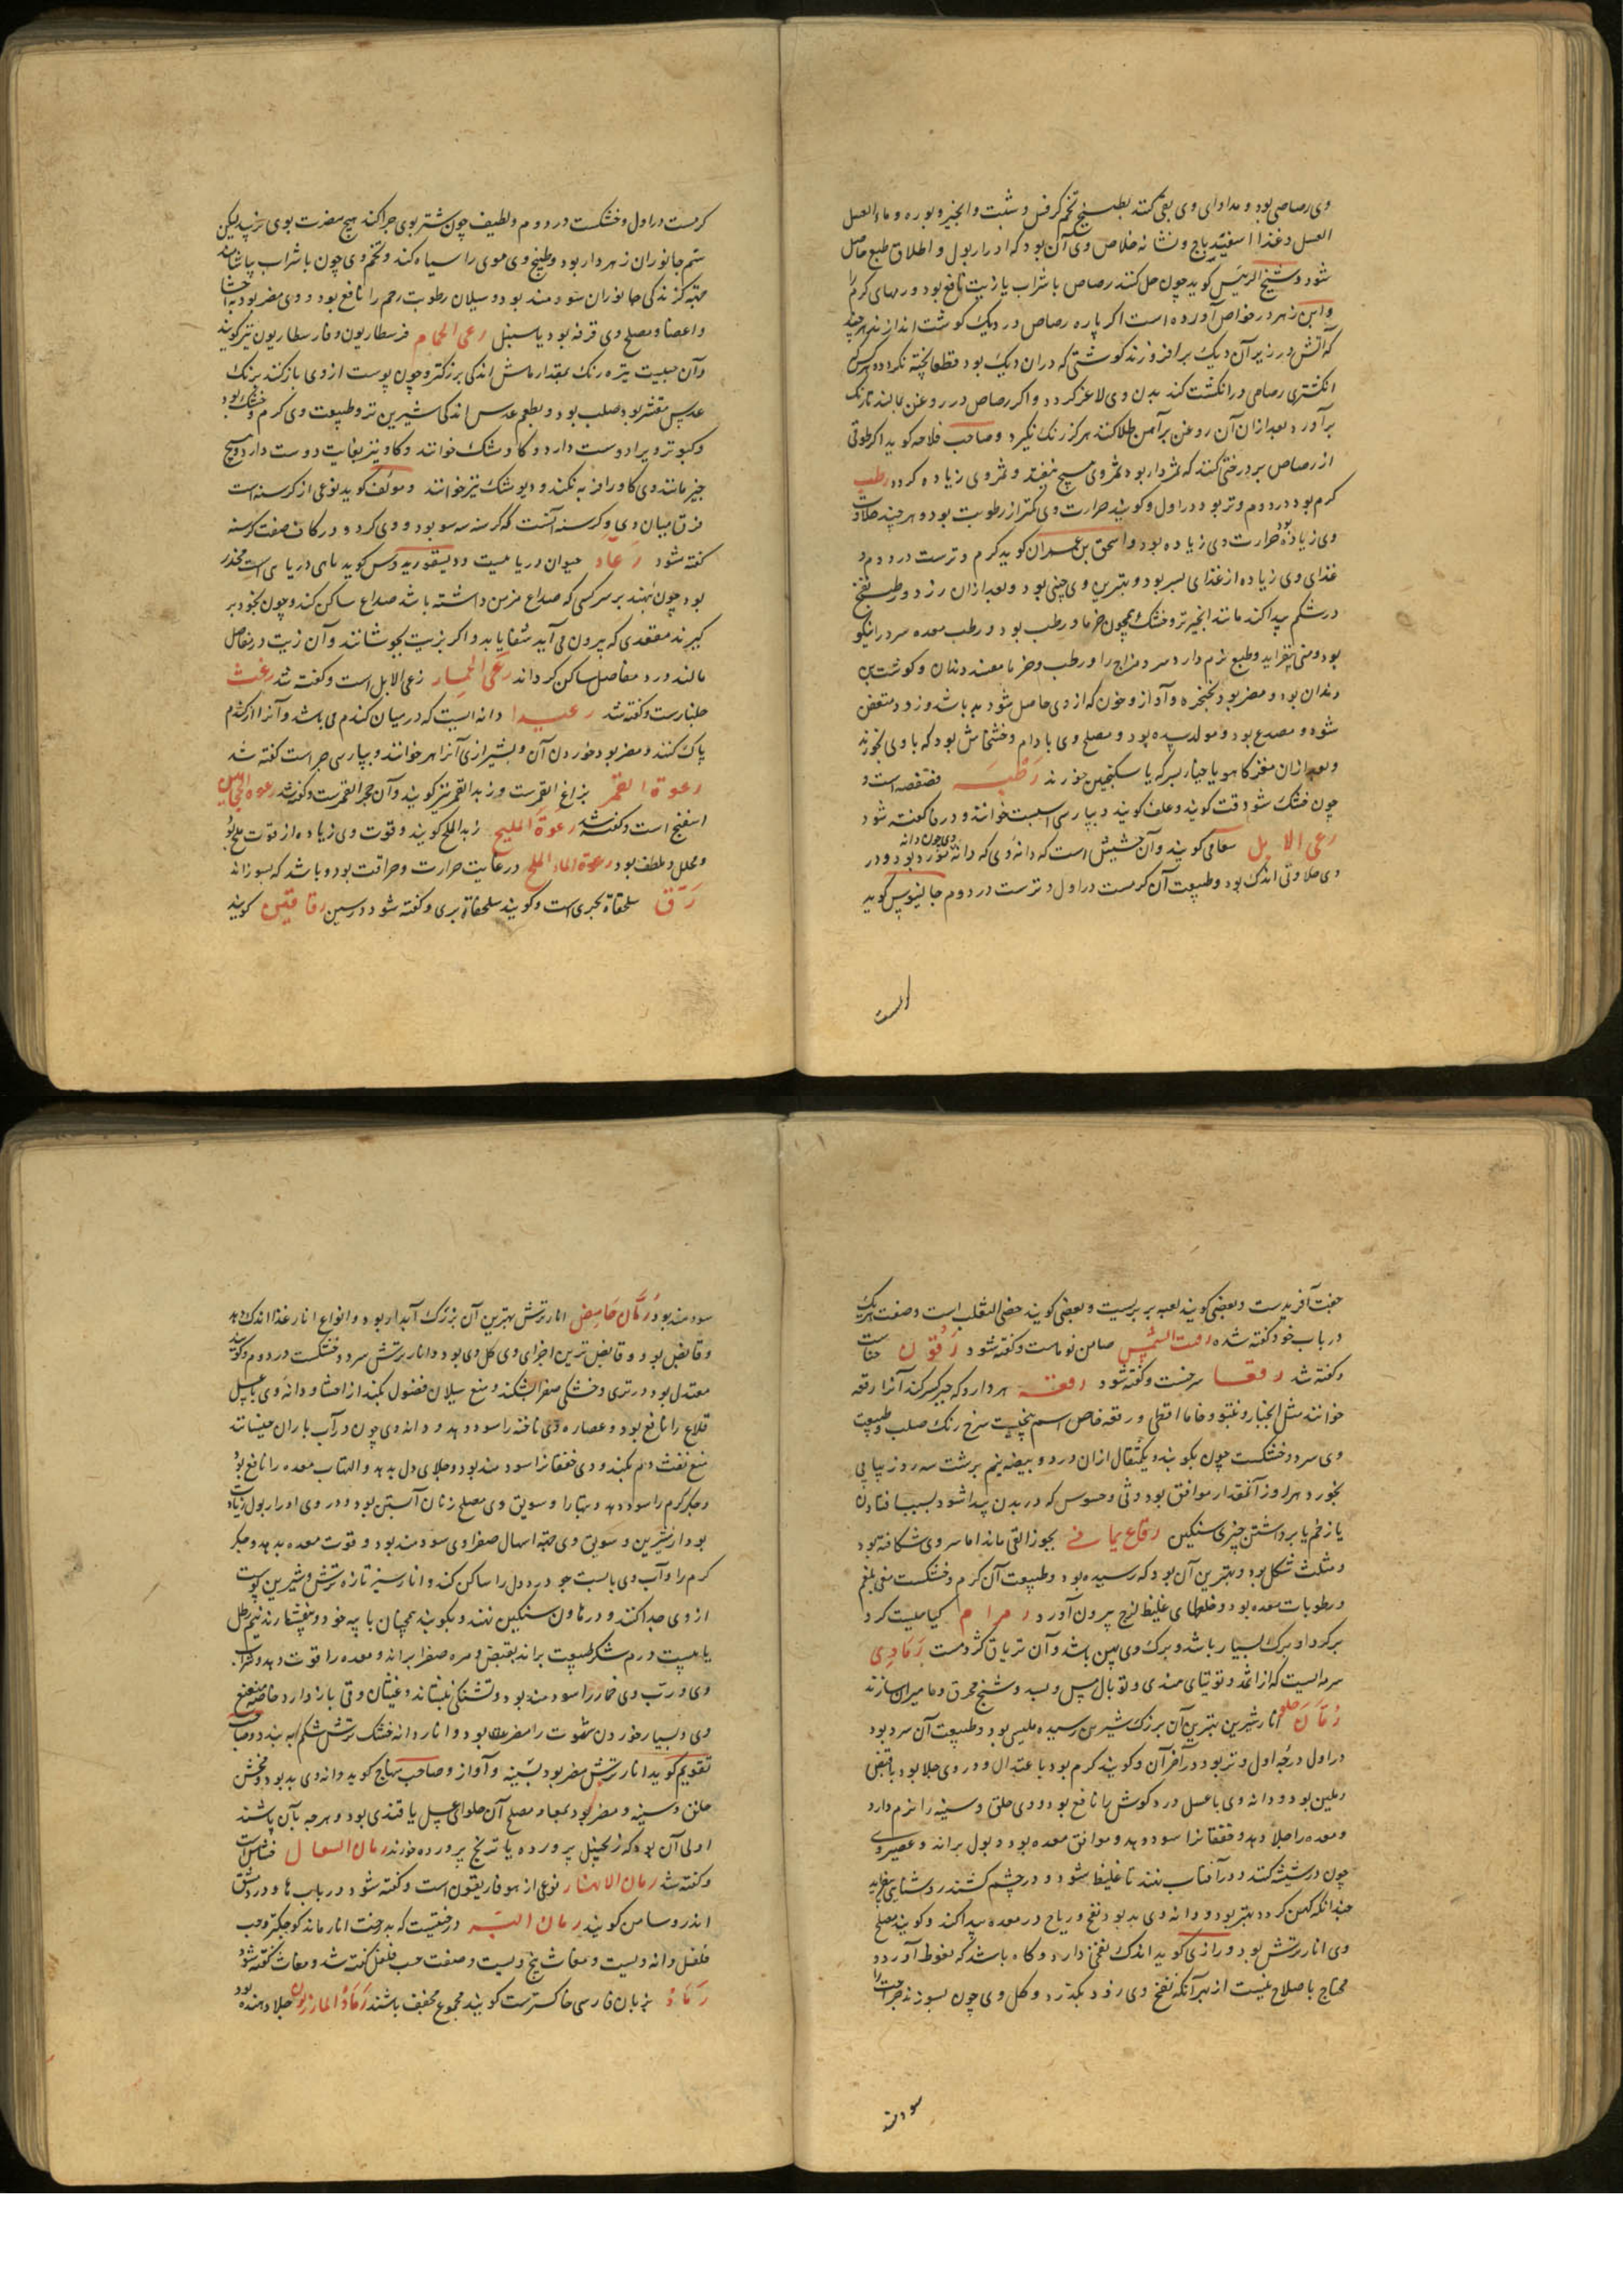 وی رصاصی بود و مداوای وی بقی کنند بطبیخ تخم کرفس و شبت و انجیر و بوره و ماءالعسل
العسل و غذا اسفیدباج و نشانه خلاص وی آن بود که ادرار بول و اطلاق طبع حاصل
شود و شیخ الرئیس کوید چون حل کنند رصاص با شراب یا زیت نافع بود ورمهای کرم را
وابن زهر در خواص آورده است اکر پاره رصاص در دیک کوشت اندازند هر چند
که آتش در زیر آن دیک برافروزند کوشتی که در آن دیک بود قطعا پخته نکردد و هر کس
انکشتری رصاص در انکشت کند بدن وی لاغر کردد و اکر رصاص در روغن بمالند تا رنک
برآورد بعد از آن آن روغن بر آهن طلا کنند هرکز زنک نکیرد و صاحب فلاحه کوید اکر طوقی
از رصاص بر درختی کنند که ثمردار بود ثمر وی هیچ نیفتد و ثمر وی زیاده کردد رطب
کرم بود در دوم و تر بود در اول و کویند حرارت وی کمتر از رطوبت بود و هر چند حلاوت
وی زیاده بود حرارت وی زیاده بود و اسحق بن عمران کوید کرم و ترست در دوم و
غذای وی زیاده از غذای بسر بود و بهترین وی جنی بود و بعد از آن زرد و رطب نفخ
در شکم پیدا کند مانند انجیر تر و خشک همچون خرما و رطب بود و رطب معده سرد را نیکو
بود و منی بیفزاید و طبع نرم دارد سرد مزاج را و رطب و خرما مفسد دندان و کوشت بن
دندان بود و مضر بود بحنجره و آواز و خون که از وی حاصل شود بد باشد و زود متعفن
شود و مصدع بود و مولد سده بود و مصلح وی بادام و خشخاش بود که با وی بخورند
و بعد از آن مغز کاهو یا خیار بسرکه یا سکنجبین خورند رطبه فصفصه است و
چون خشک شود قت کویند و علف کویند و بپارسی اسبست خوانند و در فا کفته شود
رعی الابل کویند و آن حشیش است که دانه وی که دانه مورد بود و در
وی حلاوتی اندک بود و طبیعت آن کرمست در اول و ترست در دوم جالینوس کوید
کرمست در اول و خشکست در دوم و لطیف چون شتر بوی چرا کند هیچ مضرت بوی نرسد لیکن
ستم جانوران زهردار بود و طبیخ وی موی را سیاه کند و تخم وی چون با شراب بیاشامند
جهت کزندکی جانوران سودمند بود و سیلان رطوبت رحم را نافع بود و وی مضر بود باحشا
و اعضا و مصلح وی قرفه بود یا سنبل رعی الحمام فرسطاریون و فارسطاریون نیز کویند
و آن حبیست تیره رنک بمقدار ماش اندکی بزرکتر و چون پوست از وی باز کنند برنک
عدس مقشر بود صلب بود و بطعم عدس اندکی شیرین تر و طبیعت وی کرم و خشک بود
و کبوتر ویرا دوست دارد و کاوشک خوانند و کاو نیز بغایت دوست دارد و هیچ
چیز مانند وی کاو را فربه نکند و دیوشک نیز خوانند و مؤلف کوید نوعی از کرسنه است
فرق میان وی و کرسنه آنست که کرسنه سه سو بود و وی کرد و در کاف صفت کرسنه
کفته شود رعاد حیوان دریاییست و دیسقوریدوس کوید ماهی دریای است مخدر
بود چون نهند بر سر کسی که صداع مزمن داشته باشد صداع ساکن کند و چون بخود بر
کیرند مقعدی که بیرون می آید شفا یابد و اکر بزیت بجوشانند و آن زیت در مفاصل
مالند درد مفاصل ساکن کرداند رعی الحمار رعی الابل است و کفته شد رغث
جلنارست و کفته شد رعیدا دانه ایست که در میان کندم می باشد و آنرا از کندم
پاک کنند و مضر بود خوردن آن و بشیرازی آنرا هر خوانند و بپارسی جر است کفته شد
رغوة القمر بزاغ القمرست و زبد القمر نیز کویند و آن حجر القمرست و کفته شد رغوة الحجامین
اسفنج است و کفته شد رغوة الملح زبد الملح کویند و قوت وی زیاده از قوت ملح بود
و محلل و ملطف بود رغوة الماء الملح در غایت حرارت و حراقت بود و باشد که بسوزاند
رق سلحفاة بحری است و کویند سلحفاة بری و کفته شود در سین رقاقیس کویند
جفت آفریدست و بعضی کویند لعبه بربریست و بعضی کویند خصی الثعلب است و صفت هر یک
در باب خود کفته شده رقت الشمس صامن نوماست و کفته شود رقون حناست
و کفته شد رقعا سرخست و کفته شود رقعه هر دارو که جبر کسر کند آنرا رقعه
خوانند مثل انجبار و غنبتو و خاما اقطی و رقعه خاص اسم بیخیست سرخ رنک صلب و طبیعت
وی سرد و خشکست چون بکوبند و یکمثقال از آن در دو بیضه نیم برشت سه روز پیاپی
بخورد هر روز آنمقدار موافق بود وثی و حسوس که در بدن پیدا شود بسبب افتادن
یا زخم یا برداشتن چیزی سنکین رقاع یمانی بجوز القی ماند اما سر وی شکافته بود
و مثلث شکل بود و بهترین آن بود که رسیده بود و طبیعت آن کرم و خشکست منقی بلغم
و رطوبات معده بود و خلطهای غلیظ لزج بیرون آورد رمرام کیاهیست کرد
برکرد او برک بسیار باشد و برک وی پهن باشد و آن تریاق کژدمست رمادی
سرمه ایست که از اثمد و توتیای هندی و توبال مس و بسد و شنج محرق و مامیران سازند
رمان حلو انار شیرین بهترین آن بزرک شیرین رسیده ملیسی بود و طبیعت آن سرد بود
در اول درجه اول و تر بود در آخر آن و کویند کرم بود با عتدال و در وی جلا بود با قبض
و ملین بود و دانه وی با عسل درد کوش را نافع بود و وی حلق و سینه را نرم دارد
و معده را جلا دهد و خفقانرا سود دهد و موافق معده بود و بول براند و عصیر وی
چون در شیشه کنند و در آفتاب نهند تا غلیظ شود و در چشم کشند روشنایی بیفزاید
چندانکه کهن کردد بهتر بود و دانه وی بد بود نفخ و ریاح در معده پیدا کند و کویند مصلح
وی انار ترش بود و رازی کوید اندک نفخی دارد و کاه باشد که نعوظ آورد و
محتاج باصلاح نیست از بهر آنکه نفخ وی زود بکذرد و کل وی چون بسوزند جراحت را
سودمند بود رمان حامض انار ترش بهترین آن بزرک آبدار بود و انواع انار غذا اندک دهد
و قابض بود و قابض ترین اجزای وی کل وی بود و انار ترش سرد و خشکست در دوم و کویند
معتدل بود در تری و خشکی صفرا بشکند و منع سیلان فضول بکند از احشا و دانه وی با عسل
قلاع را نافع بود و عصاره وی ناخنه را سود دهد و دانه وی چون در آب باران خیسانند
منع نفث دم بکند و وی خفقانرا سودمند بود و جلای دل بدهد و التهاب معده را نافع بود
و جکر کرم را سود دهد و تبها را و سویق وی مصلح زنان آبستن بود و در وی ادرار بول زیادت
بود از شیرین و سویق وی جهت اسهال صفراوی سودمند بود و قوت معده بدهد و جکر
کرم را و آب وی با بست جو درد دل را ساکن کند و انار سبز تازه ترش و شیرین پوست
از وی جدا کنند و در هاون سنکین نهند و بکوبند همچنان با پیه خود و بیفشارند نیم رطل
یا بیست درم شکر طبیعت براند بقبض و مره صفرا براند و معده را قوت دهد و شراب
وی و رب وی خمار را سودمند بود و تشنکی بنشاند و غثیان و قی باز دارد خاصه منعنع
وی و بسیار خوردن شهوت را مضر بود و انار دانه خشک ترش شکم ببندد و صاحب
تقویم کوید انار ترش مضر بود بسینه و آواز و صاحب منهاج کوید دانه وی بد بود و مخشن
حلق و سینه و مضر بود بمعا و مصلح آن حلوای عسل یا قندی بود و هر چه بآن باشند
اولی آن بود که زنجبیل پرورده یا ترنج پرورده خورند رمان السعال خشخاش است
و کفته شد رمان الانهار نوعی از هوفاریقون است و کفته شود در باب ها و در دمشق
اندروسامن کویند رمان البته درختیست که بدرخت انار ماند کوچکتر و حب
فلفل دانه ویست و مغاث بیخ ویست و صفت حب فلفل کفته شد و مغاث کفته شود
رماد بزبان فارسی خاکسترست کویند مجموع مجفف باشند رماد المازریون جلا دهنده بود
سودمند